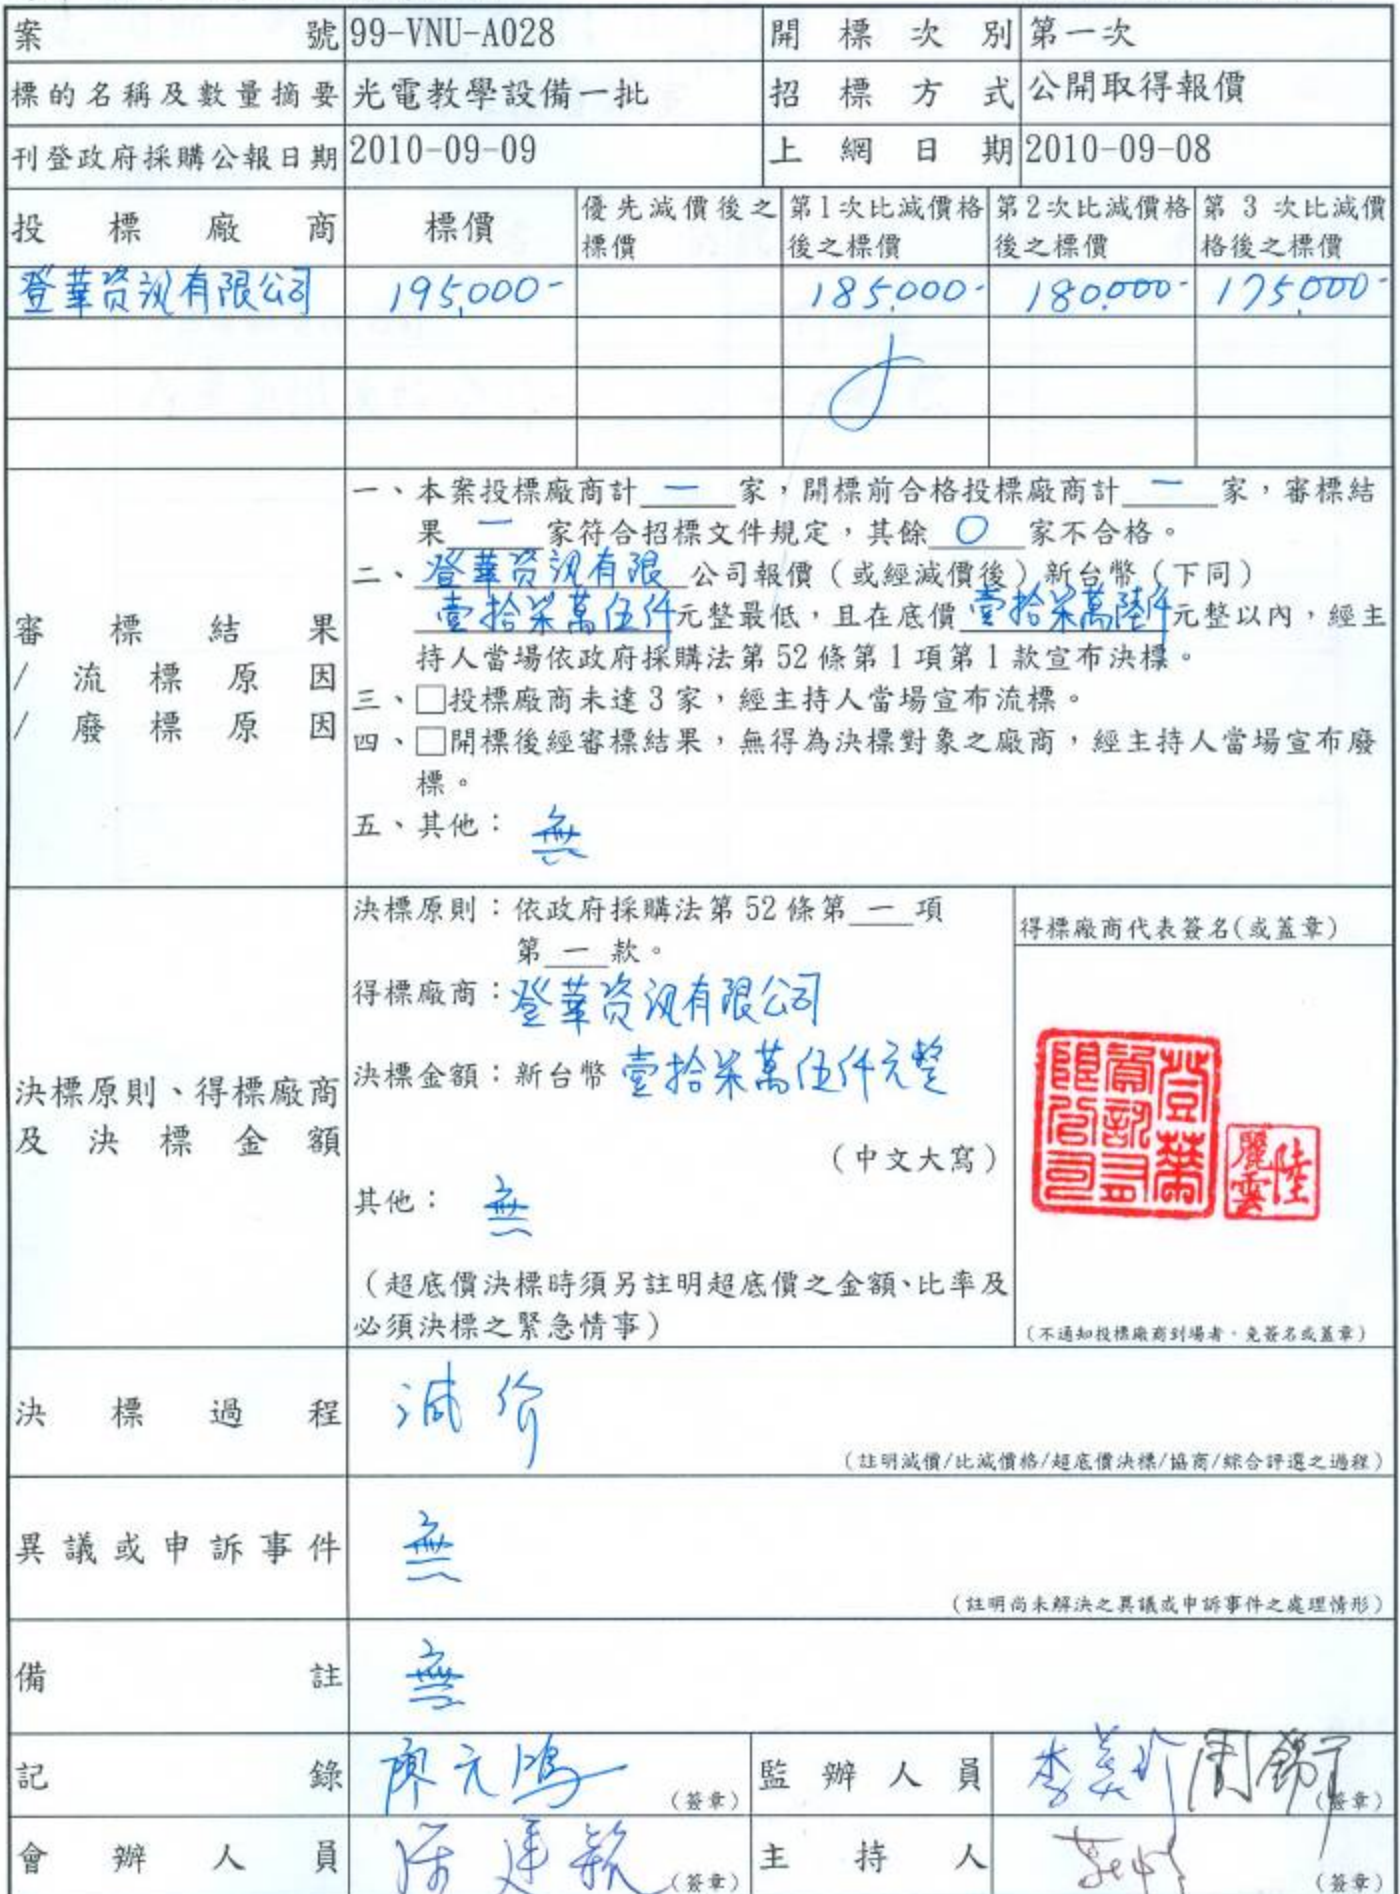 案號 99-VNU-A028 開標次別 第一次
標的名稱及數量摘要 光電教學設備一批 招標方式 公開取得報價
刊登政府採購公報日期 2010-09-09 上網日期 2010-09-08
投標廠商 標價 優先減價後之標價 第1次比減價格後之標價 第2次比減價格後之標價 第 3 次比減價格後之標價
登華資訊有限公司 195,000- 185,000- 180,000- 175,000-
審標結果
/流標原因
/廢標原因
一、本案投標廠商計 一 家，開標前合格投標廠商計 一 家，審標結
果 一 家符合招標文件規定，其餘 0 家不合格。
二、登華資訊有限公司報價（或經減價後）新台幣（下同）
壹拾柒萬伍仟元整最低，且在底價壹拾柒萬陸仟元整以內，經主
持人當場依政府採購法第 52 條第 1 項第 1 款宣布決標。
三、□投標廠商未達 3 家，經主持人當場宣布流標。
四、□開標後經審標結果，無得為決標對象之廠商，經主持人當場宣布廢
標。
五、其他：無
決標原則、得標廠商
及決標金額
決標原則：依政府採購法第 52 條第 一 項
第 一 款。
得標廠商：登華資訊有限公司
決標金額：新台幣 壹拾柒萬伍仟元整
（中文大寫）
其他：無
（超底價決標時須另註明超底價之金額、比率及
必須決標之緊急情事）
得標廠商代表簽名(或蓋章)
登華資訊有限公司
陸麗雲
（不通知投標廠商到場者，免簽名或蓋章）
決標過程 減价
（註明減價/比減價格/超底價決標/協商/綜合評選之過程）
異議或申訴事件 無
（註明尚未解決之異議或申訴事件之處理情形）
備註 無
記錄 廖元鴻 （簽章） 監辦人員 （簽章）
會辦人員 （簽章） 主持人 （簽章）